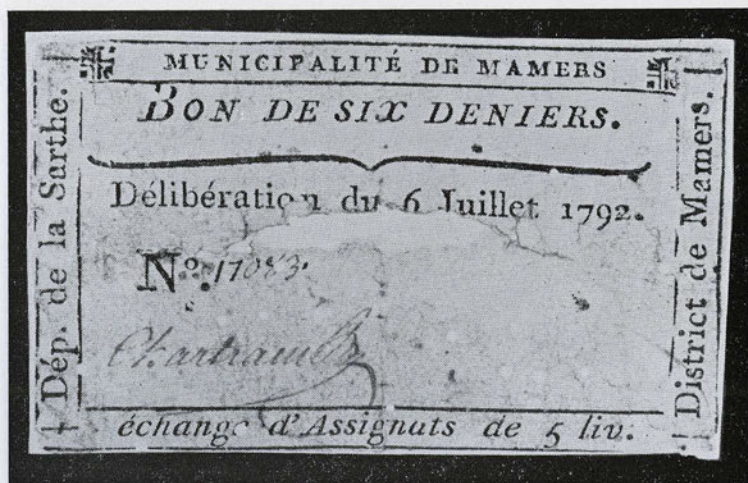 MUNICIPALITÉ DE MAMERS
BON DE SIX DENIERS.
Délibération du 6 Juillet 1792.
Nº. 17083.
échange d'Assignats de 5 liv.
Dép. de la Sarthe.
District de Mamers.